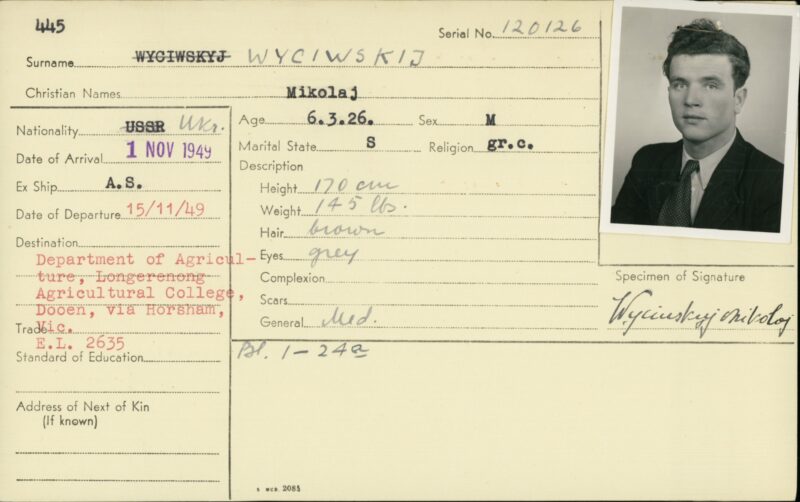 445
Serial No. 120126
Surname WYCIWSKYJ WYCIWSKIJ
Christian Names Mikolaj
Nationality USSR Ukr.
Age 6.3.26. Sex M
Date of Arrival 1 NOV 1949
Marital State S Religion gr.c.
Ex Ship A.S.
Description
Height 170 cm
Date of Departure 15/11/49
Weight 145 lbs.
Hair brown
Destination
Eyes grey
Department of Agricul-
ture, Longerenong
Agricultural College,
Dooen, via Horsham,
Vic.
E.L. 2635
Complexion
Scars
General Med.
Trade
Standard of Education
Bl. 1-24a
Address of Next of Kin
(If known)
Specimen of Signature
Wyciwskyj Mikolaj